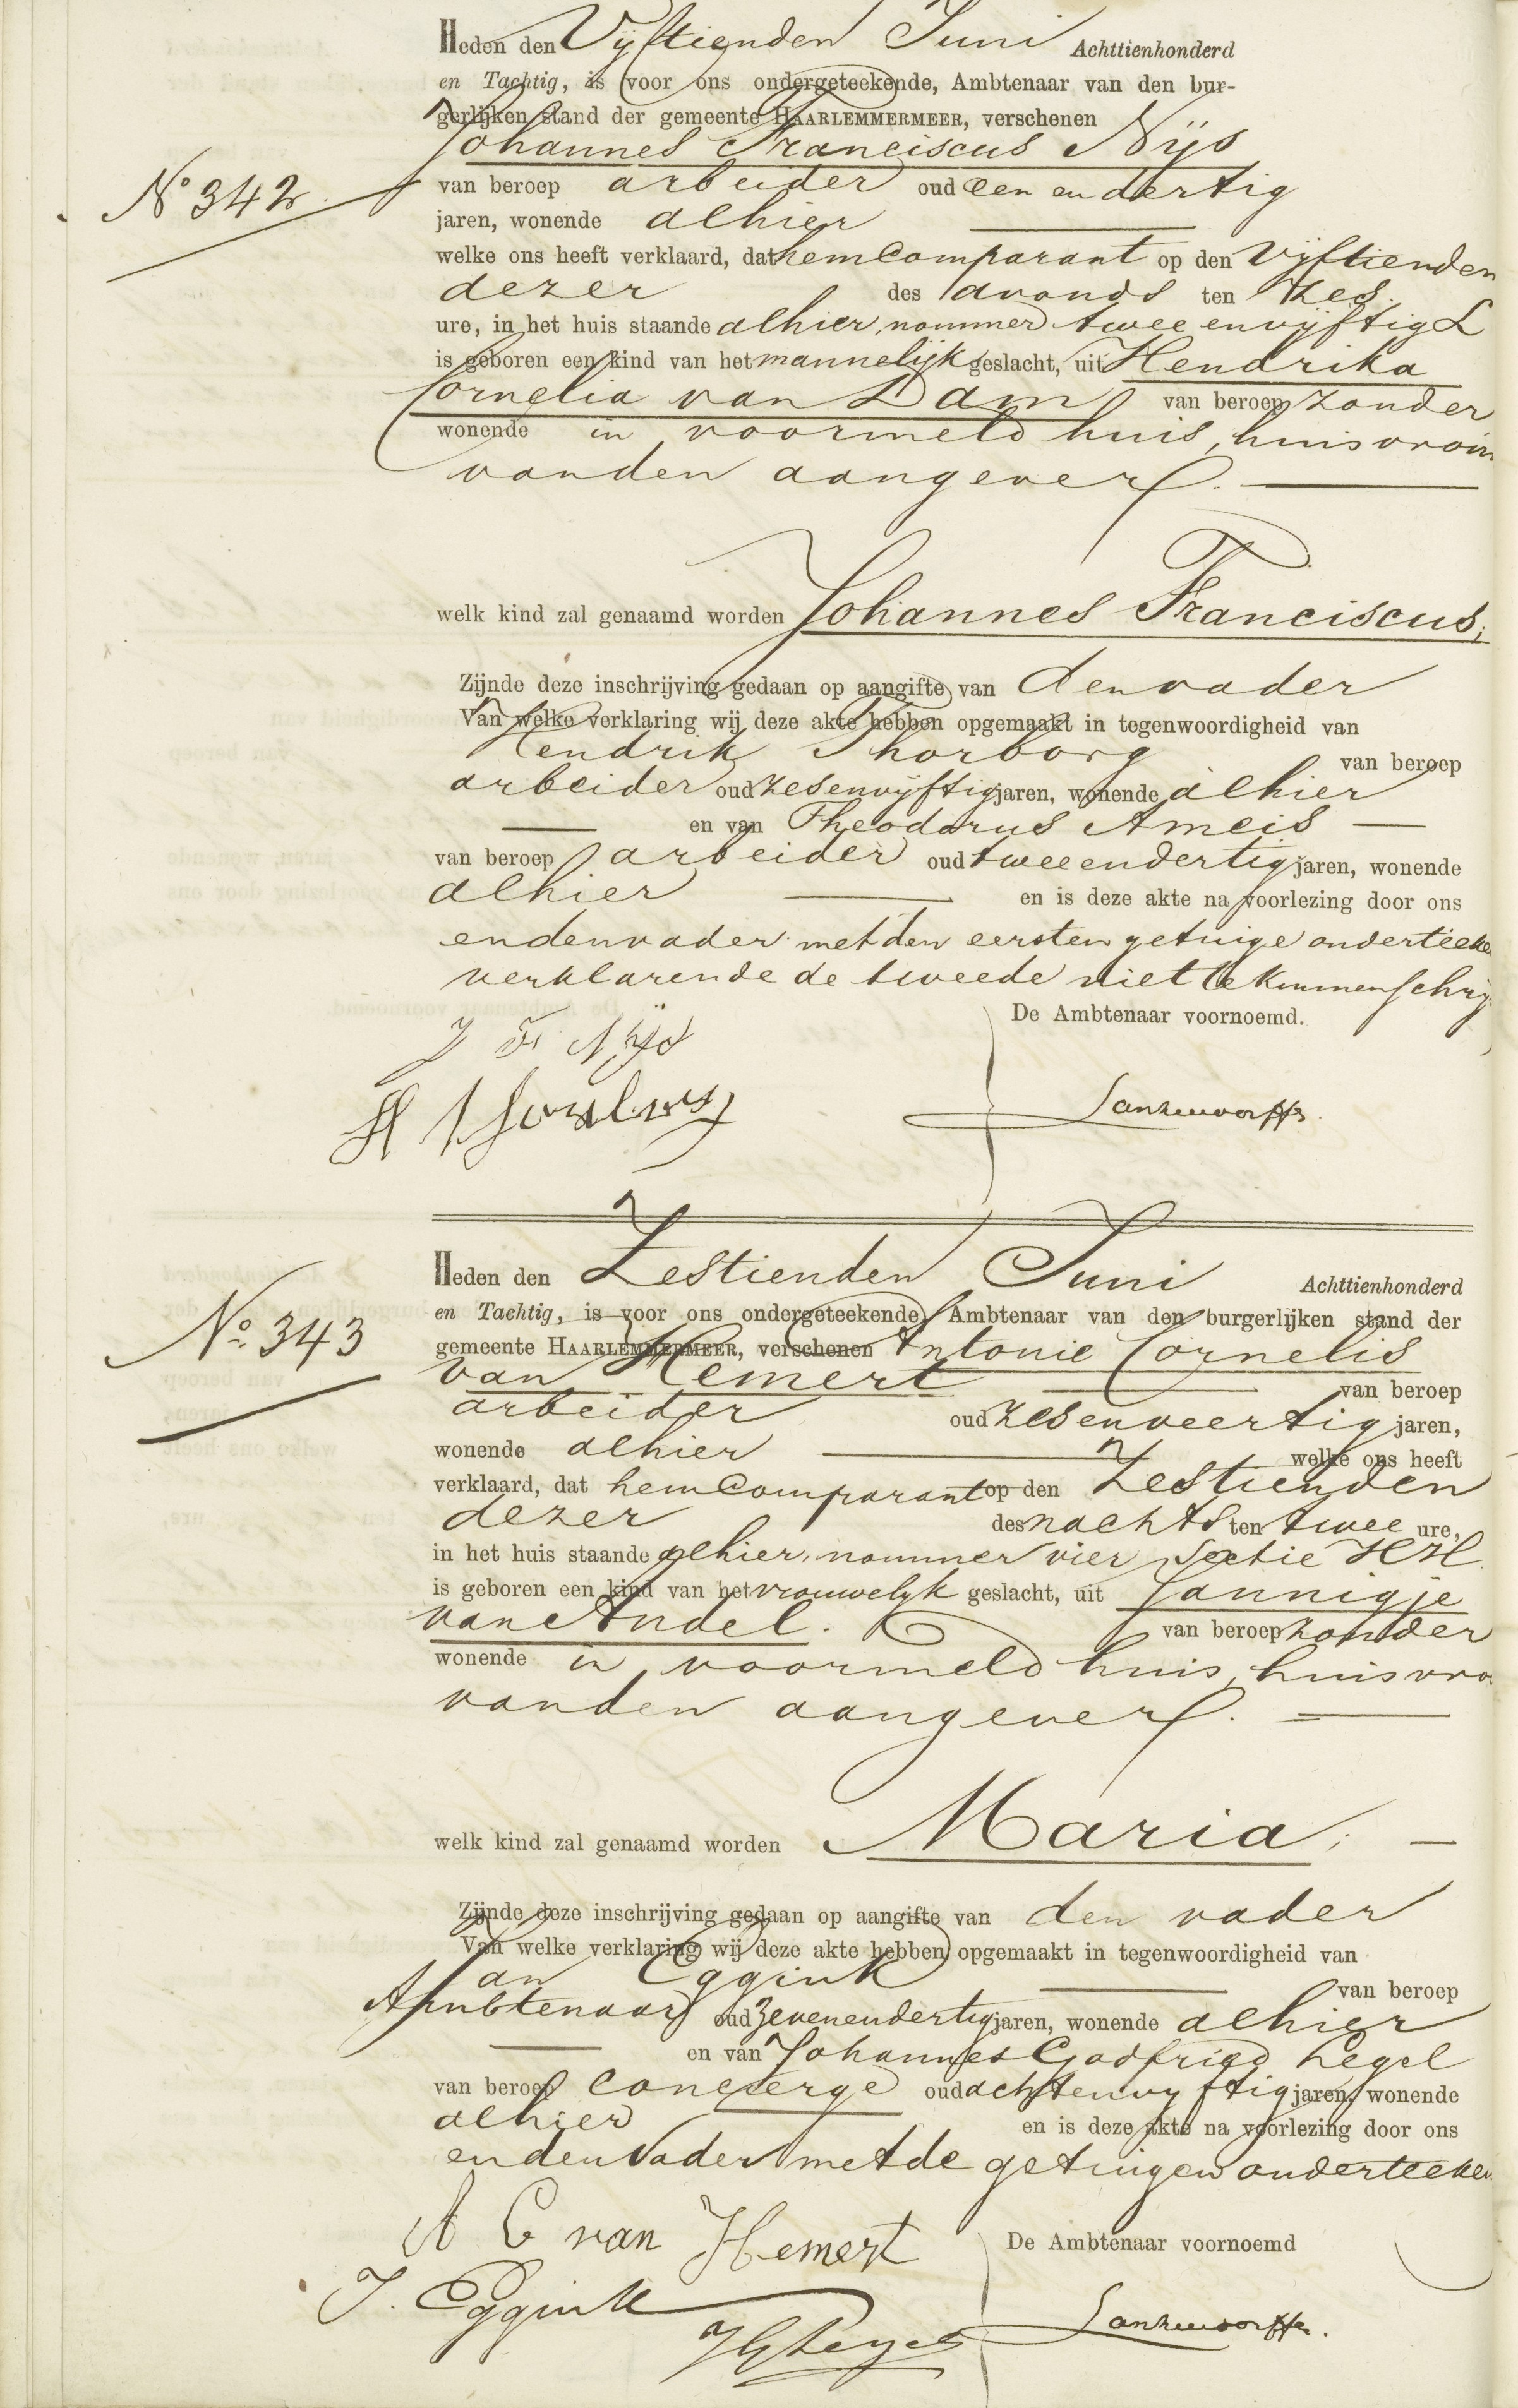 Heden den Vijftienden Juni Achttienhonderd
en Tachtig, is voor ons ondergeteekende, Ambtenaar van den bur-
gerlijken stand der gemeente HAARLEMMERMEER, verschenen
Johannes Franciscus Nijs
No 342. van beroep arbeider oud een en dertig
jaren, wonende alhier
welke ons heeft verklaard, dat hem Comparant op den Vijftienden
dezer des avonds ten zes
ure, in het huis staande alhier, nommer twee en vijftig L
is geboren een kind van het mannelijk geslacht, uit Hendrika
Cornelia van Dam van beroep zonder
wonende in voormeld huis, huisvrouw
van den aangever.
welk kind zal genaamd worden Johannes Franciscus;
Zijnde deze inschrijving gedaan op aangifte van den vader
Van welke verklaring wij deze akte hebben opgemaakt in tegenwoordigheid van
Hendrik Thorborg van beroep
arbeider oud zesenvijftig jaren, wonende alhier
en van Theodorus Ameis
van beroep arbeider oud tweeendertig jaren, wonende
alhier en is deze akte na voorlezing door ons
en den vader met den eersten getuige onderteeke
verklarende de tweede niet te kunnen schrij
De Ambtenaar voornoemd.
J F Nijs
H Thorborg
Heden den Zestienden Juni Achttienhonderd
en Tachtig, is voor ons ondergeteekende Ambtenaar van den burgerlijken stand der
No. 343 gemeente HAARLEMMERMEER, verschenen Antonie Cornelis
van Hemert van beroep
arbeider oud zesenveertig jaren,
wonende alhier welke ons heeft
verklaard, dat hem Comparant op den Zestienden
dezer des nachts ten twee ure,
in het huis staande alhier, nommer vier Sectie HH
is geboren een kind van het vrouwelijk geslacht, uit Jannigje
van Andel. van beroep zonder
wonende in voormeld huis, huisvro
van den aangever.
welk kind zal genaamd worden Maria;
Zijnde deze inschrijving gedaan op aangifte van den vader
Van welke verklaring wij deze akte hebben opgemaakt in tegenwoordigheid van
Jan Eggink van beroep
Ambtenaar oud zevenendertig jaren, wonende alhier
en van Johannes Godfried Legel
van beroep concierge oud achtenvyftig jaren, wonende
alhier en is deze akte na voorlezing door ons
en den Vader met de getuigen onderteeken
A C van Hemert De Ambtenaar voornoemd
J. Eggink